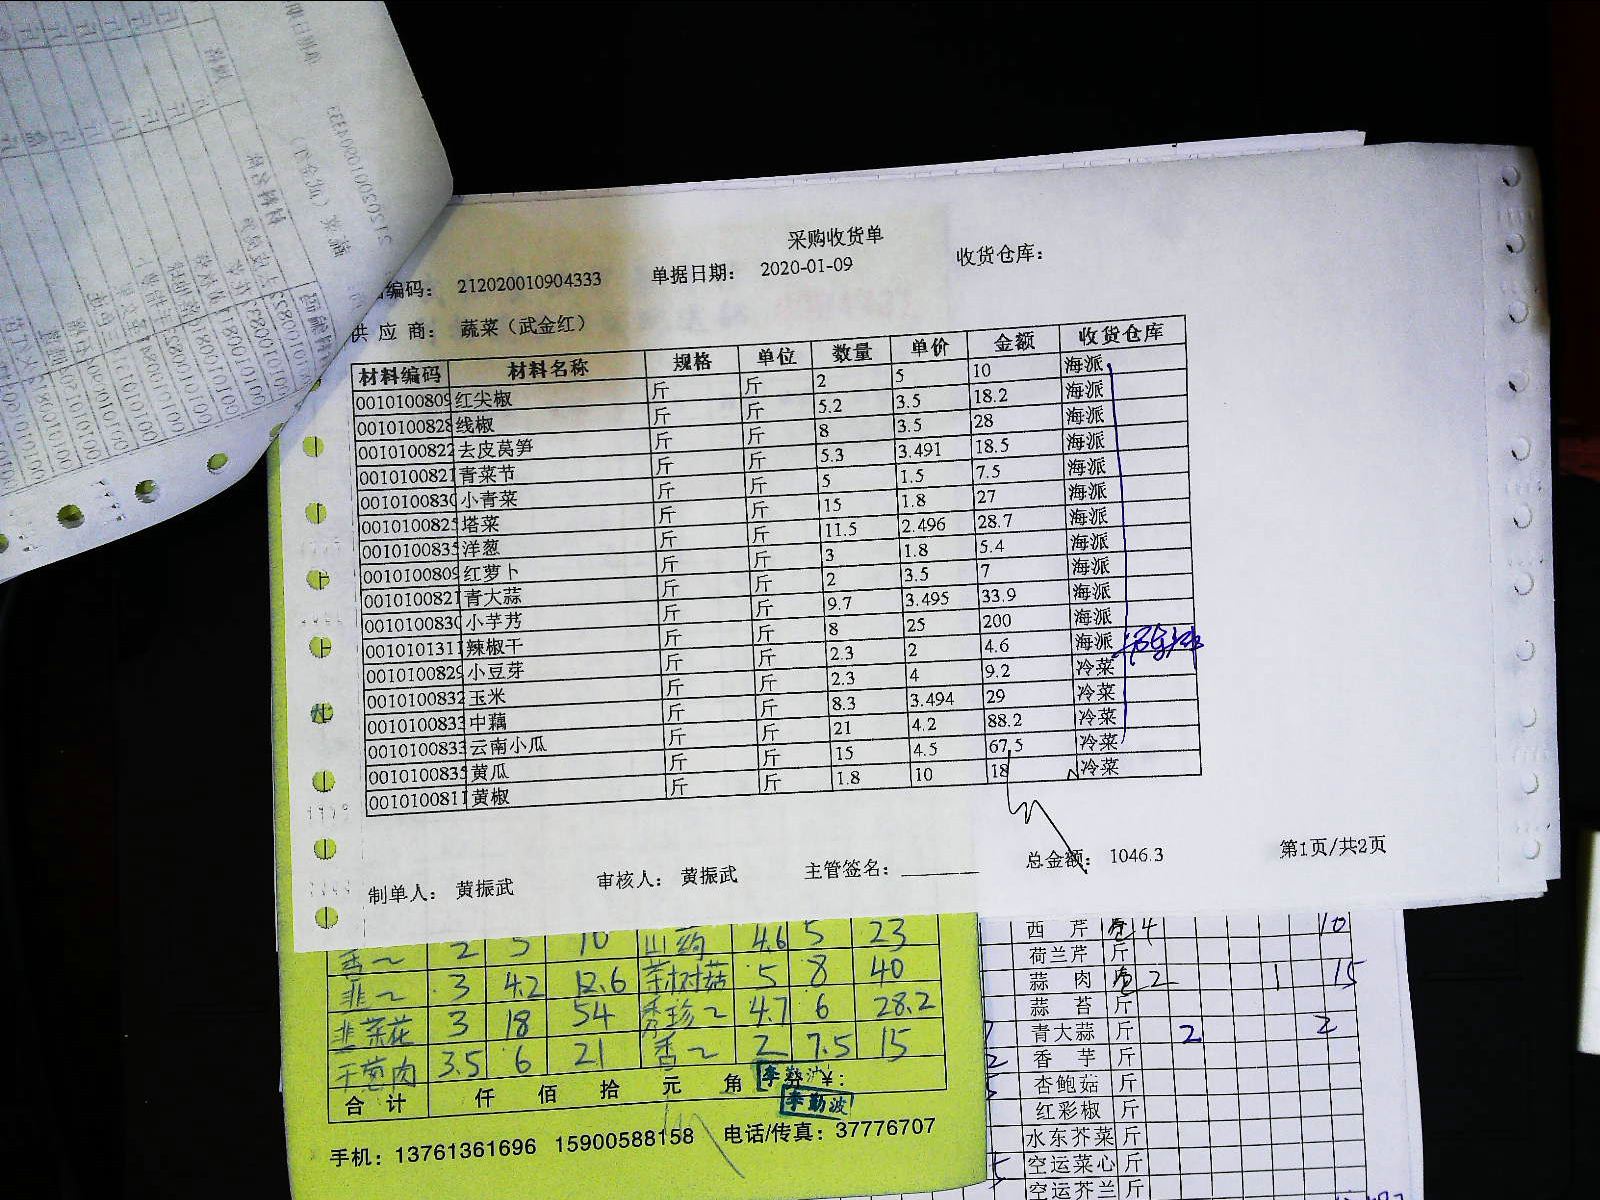 采购收货单
编码： 212020010904333 单据日期： 2020-01-09 收货仓库：
供 应 商： 蔬菜（武金红）
材料编码 材料名称 规格 单位 数量 单价 金额 收货仓库
0010100809 红尖椒 斤 斤 2 5 10 海派
0010100828 线椒 斤 斤 5.2 3.5 18.2 海派
0010100822 去皮莴笋 斤 斤 8 3.5 28 海派
0010100821 青菜节 斤 斤 5.3 3.491 18.5 海派
0010100830 小青菜 斤 斤 5 1.5 7.5 海派
0010100825 塔菜 斤 斤 15 1.8 27 海派
0010100835 洋葱 斤 斤 11.5 2.496 28.7 海派
0010100809 红萝卜 斤 斤 3 1.8 5.4 海派
0010100821 青大蒜 斤 斤 2 3.5 7 海派
0010100830 小芋艿 斤 斤 9.7 3.495 33.9 海派
0010101311 辣椒干 斤 斤 8 25 200 海派
0010100829 小豆芽 斤 斤 2.3 2 4.6 海派
0010100832 玉米 斤 斤 2.3 4 9.2 冷菜
0010100833 中藕 斤 斤 8.3 3.494 29 冷菜
0010100833 云南小瓜 斤 斤 21 4.2 88.2 冷菜
0010100835 黄瓜 斤 斤 15 4.5 67.5 冷菜
0010100811 黄椒 斤 斤 1.8 10 18 冷菜
制单人： 黄振武 审核人： 黄振武 主管签名： 总金额： 1046.3 第1页/共2页
2 5 10 山药 4.6 5 23
韭~ 3 4.2 12.6 茶树菇 5 8 40
韭菜花 3 18 54 秀珍~ 4.7 6 28.2
干葱肉 3.5 6 21 香~ 2 7.5 15
合 计 仟 佰 拾 元 角 分 ¥：
李勤波
李勤波
手机：13761361696 15900588158 电话/传真：37776707
西 芹 4 10
荷兰芹 斤
蒜 肉 2 1 15
蒜 苔 斤
青大蒜 斤 2 2
香 芋 斤
杏鲍菇 斤
红彩椒 斤
水东芥菜 斤
空运菜心 斤
空运芥兰 斤